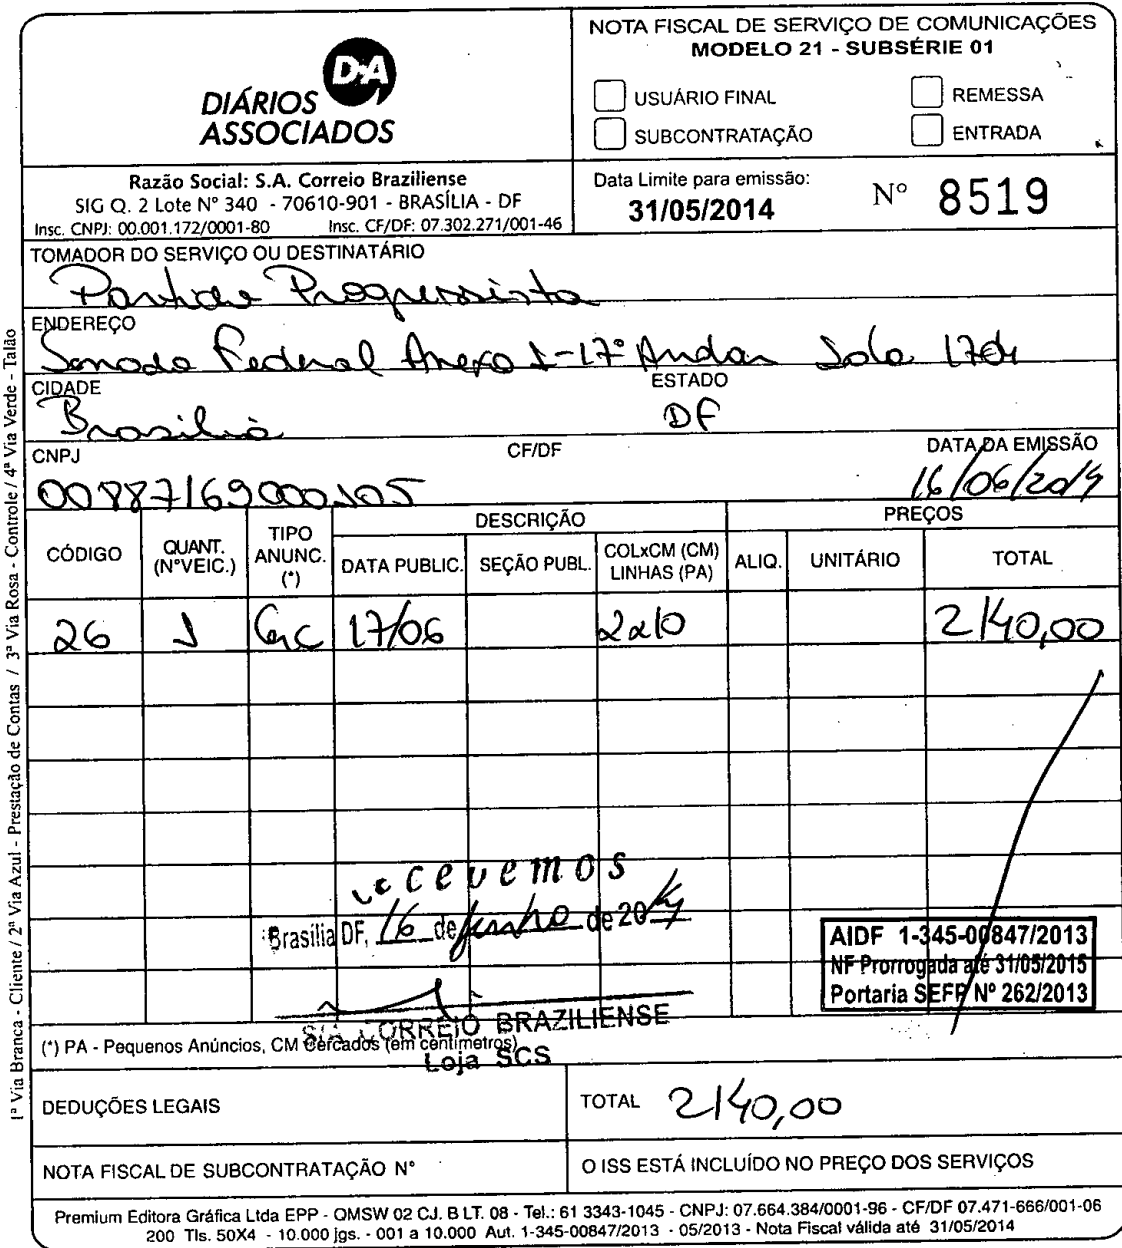 D•A
DIÁRIOS
ASSOCIADOS
NOTA FISCAL DE SERVIÇO DE COMUNICAÇÕES
MODELO 21 - SUBSÉRIE 01
USUÁRIO FINAL
REMESSA
SUBCONTRATAÇÃO
ENTRADA
Razão Social: S.A. Correio Braziliense
SIG Q. 2 Lote N° 340 - 70610-901 - BRASÍLIA - DF
Insc. CNPJ: 00.001.172/0001-80 Insc. CF/DF: 07.302.271/001-46
Data Limite para emissão:
31/05/2014
N° 8519
TOMADOR DO SERVIÇO OU DESTINATÁRIO
Partido Progressista
ENDEREÇO
Senado Federal Anexo I-17° Andar Sala 1704
CIDADE
Brasilia
ESTADO
DF
CNPJ
00887169000105
CF/DF
DATA DA EMISSÃO
16/06/2014
CÓDIGO
QUANT. (N°VEIC.)
TIPO ANUNC. (*)
DESCRIÇÃO
DATA PUBLIC.
SEÇÃO PUBL.
COLxCM (CM) LINHAS (PA)
PREÇOS
ALIQ.
UNITÁRIO
TOTAL
26 1 Cerc 17/06 2x10 2140,00
Recevemos
Brasília DF, 16 de Junho de 2014
S/A CORREIO BRAZILIENSE
Loja SCS
AIDF 1-345-00847/2013
NF Prorrogada até 31/05/2015
Portaria SEFP N° 262/2013
(*) PA - Pequenos Anúncios, CM Cercados (em centímetros)
DEDUÇÕES LEGAIS
TOTAL 2140,00
NOTA FISCAL DE SUBCONTRATAÇÃO N°
O ISS ESTÁ INCLUÍDO NO PREÇO DOS SERVIÇOS
Premium Editora Gráfica Ltda EPP - QMSW 02 CJ. B LT. 08 - Tel.: 61 3343-1045 - CNPJ: 07.664.384/0001-96 - CF/DF 07.471-666/001-06
200 Tls. 50X4 - 10.000 jgs. - 001 a 10.000 Aut. 1-345-00847/2013 - 05/2013 - Nota Fiscal válida até 31/05/2014
1ª Via Branca - Cliente / 2ª Via Azul - Prestação de Contas / 3ª Via Rosa - Controle / 4ª Via Verde - Talão